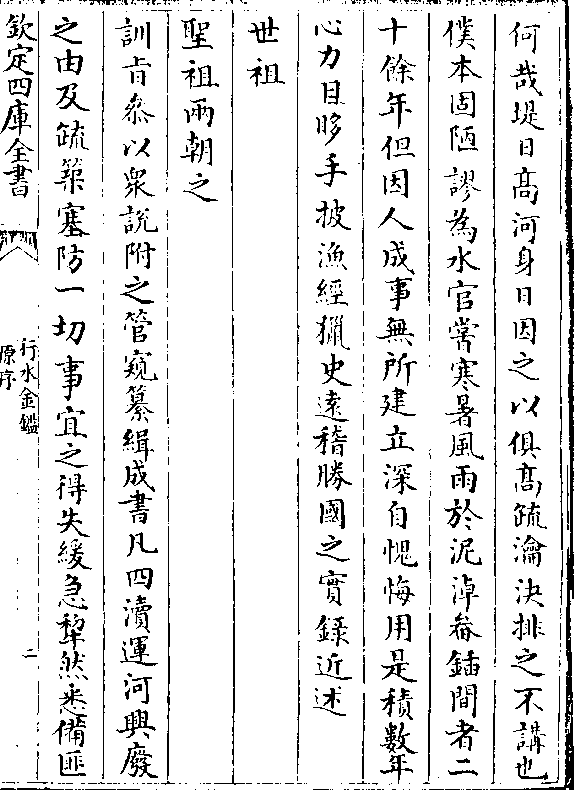 何哉堤日髙河身日因之以俱髙疏瀹決排之不講也
僕本固陋謬為水官嘗寒暑風雨於泥淖畚鍤間者二
十餘年但因人成事無所建立深自愧悔用是積數年
心力目眵手披漁經獵史遠稽勝國之實録近述
世祖
聖祖兩朝之
訓㫖叅以衆說附之管窺纂緝成書凡四瀆運河興廢
之由及疏築塞防一切事宜之得失緩急犂然悉備匪
欽定四庫全書
行水金鑑
原序
二